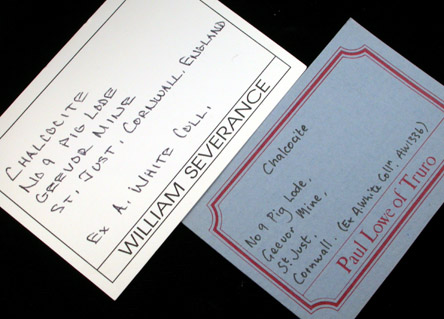 CHALCOCITE
NO 9 PIG LODE
GEEVOR MINE
ST. JUST, CORNWALL, ENGLAND
EX A. WHITE COLL.
WILLIAM SEVERANCE
Chalcocite
No 9 Pig Lode,
Geevor Mine,
St Just,
Cornwall. (Ex A.White Colln. AW1336)
Paul Lowe of Truro